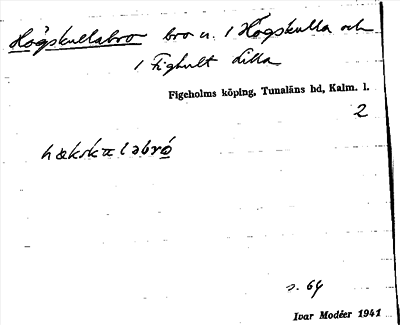 Högskullabro bro n. / Högskulla och
/ Fighult lilla
Figeholms köping, Tunaläns hd, Kalm. l.
2
s. 64
Ivar Modéer 1941